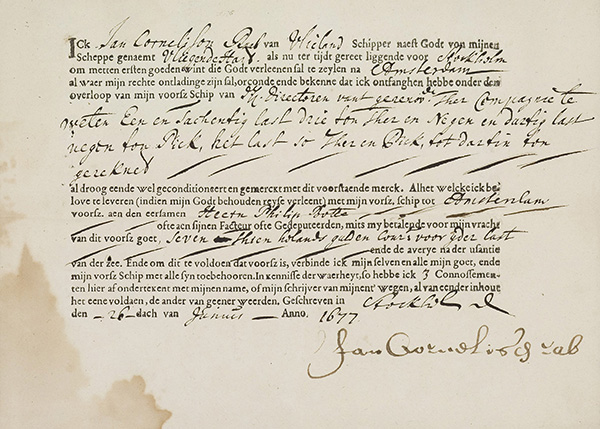 ICk Jan Cornelisson van Vlieland Schipper naest Godt von mijnen
Scheppe genaemt Vliegende Has, als nu ter tijdt gereet liggende voor Stockholm
om metten ersten goeden wint die Godt verleenen sal te zeylen na Amsterdam
al waer mijn rechte ontladinge zijn sal, orconde ende bekenne dat ick ontfanghen hebbe onder den
overloop van mijn voors Schip van Directoren vant Ther Compagnie te
weten Een en tachentig last drie ton ther en Negen en dartig last
negen ton Pick, het last so Ther en Pick, tot dartin ton
gerekned
al droog eende wel geconditioneert en gemerckt met dit voorstaende merck. Al het welcke ick be
love te leveren (indien mijn Godt behouden reyse verleent) met mijn vorsz, schip tot Amsterdam
voorsz. aen den eersamen Heern Philip Botte
ofte aen sijnen Facteur ofte Gedeputeerden, mits my betalende voor mijn vracht
van dit voorsz goet, seven thien holands gulden voor yder last
ende de averye na de usantie
van der zee. Ende om dit te voldoen dat voorsz is, verbinde ick mijn selven en alle mijn goet, ende
mijn vorsz Schip met alle syn toebehooren. In kennisse der waerheyt, so hebbe ick 3 Connossemen-
ten hier af ondertekent met mijnen name, of mijn schrijver van mijnent' wegen, al van eender inhout
het eene voldaen, de ander van geener weerden. Geschreven in Stockhol
den - 26 - dach van Junius Anno, 1677
Jan Cornelisch